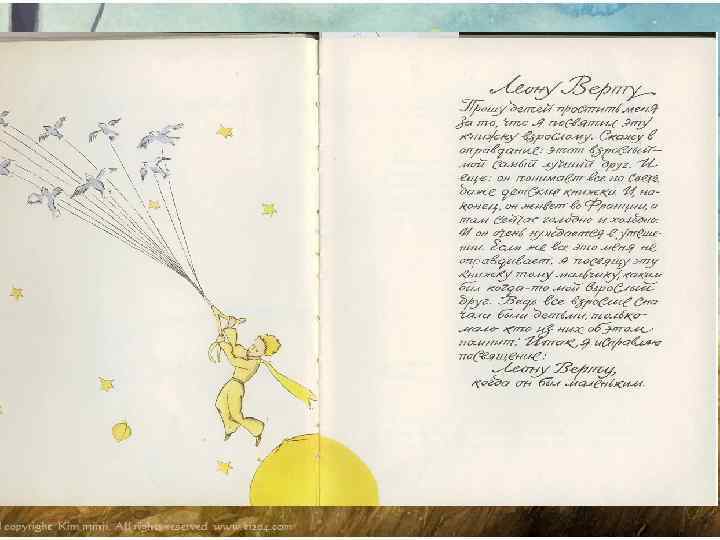 Леону Верту
Прошу детей простить меня
за то, что я посвятил эту
книжку взрослому. Скажу в
оправдание: этот взрослый –
мой самый лучший друг. И
еще: он понимает все на свете,
даже детские книжки. И, на-
конец, он живет во Франции, а
там сейчас голодно и холодно.
И он очень нуждается в утеше-
нии. Если же все это меня не
оправдывает, я посвящу эту
книжку тому мальчику, каким
был когда-то мой взрослый
друг. Ведь все взрослые сна-
чала были детьми, только
мало кто из них об этом
помнит. Итак, я исправляю
посвящение:
Леону Верту,
когда он был маленьким.
copyright Kim mimi. All rights reserved www.ti204.com